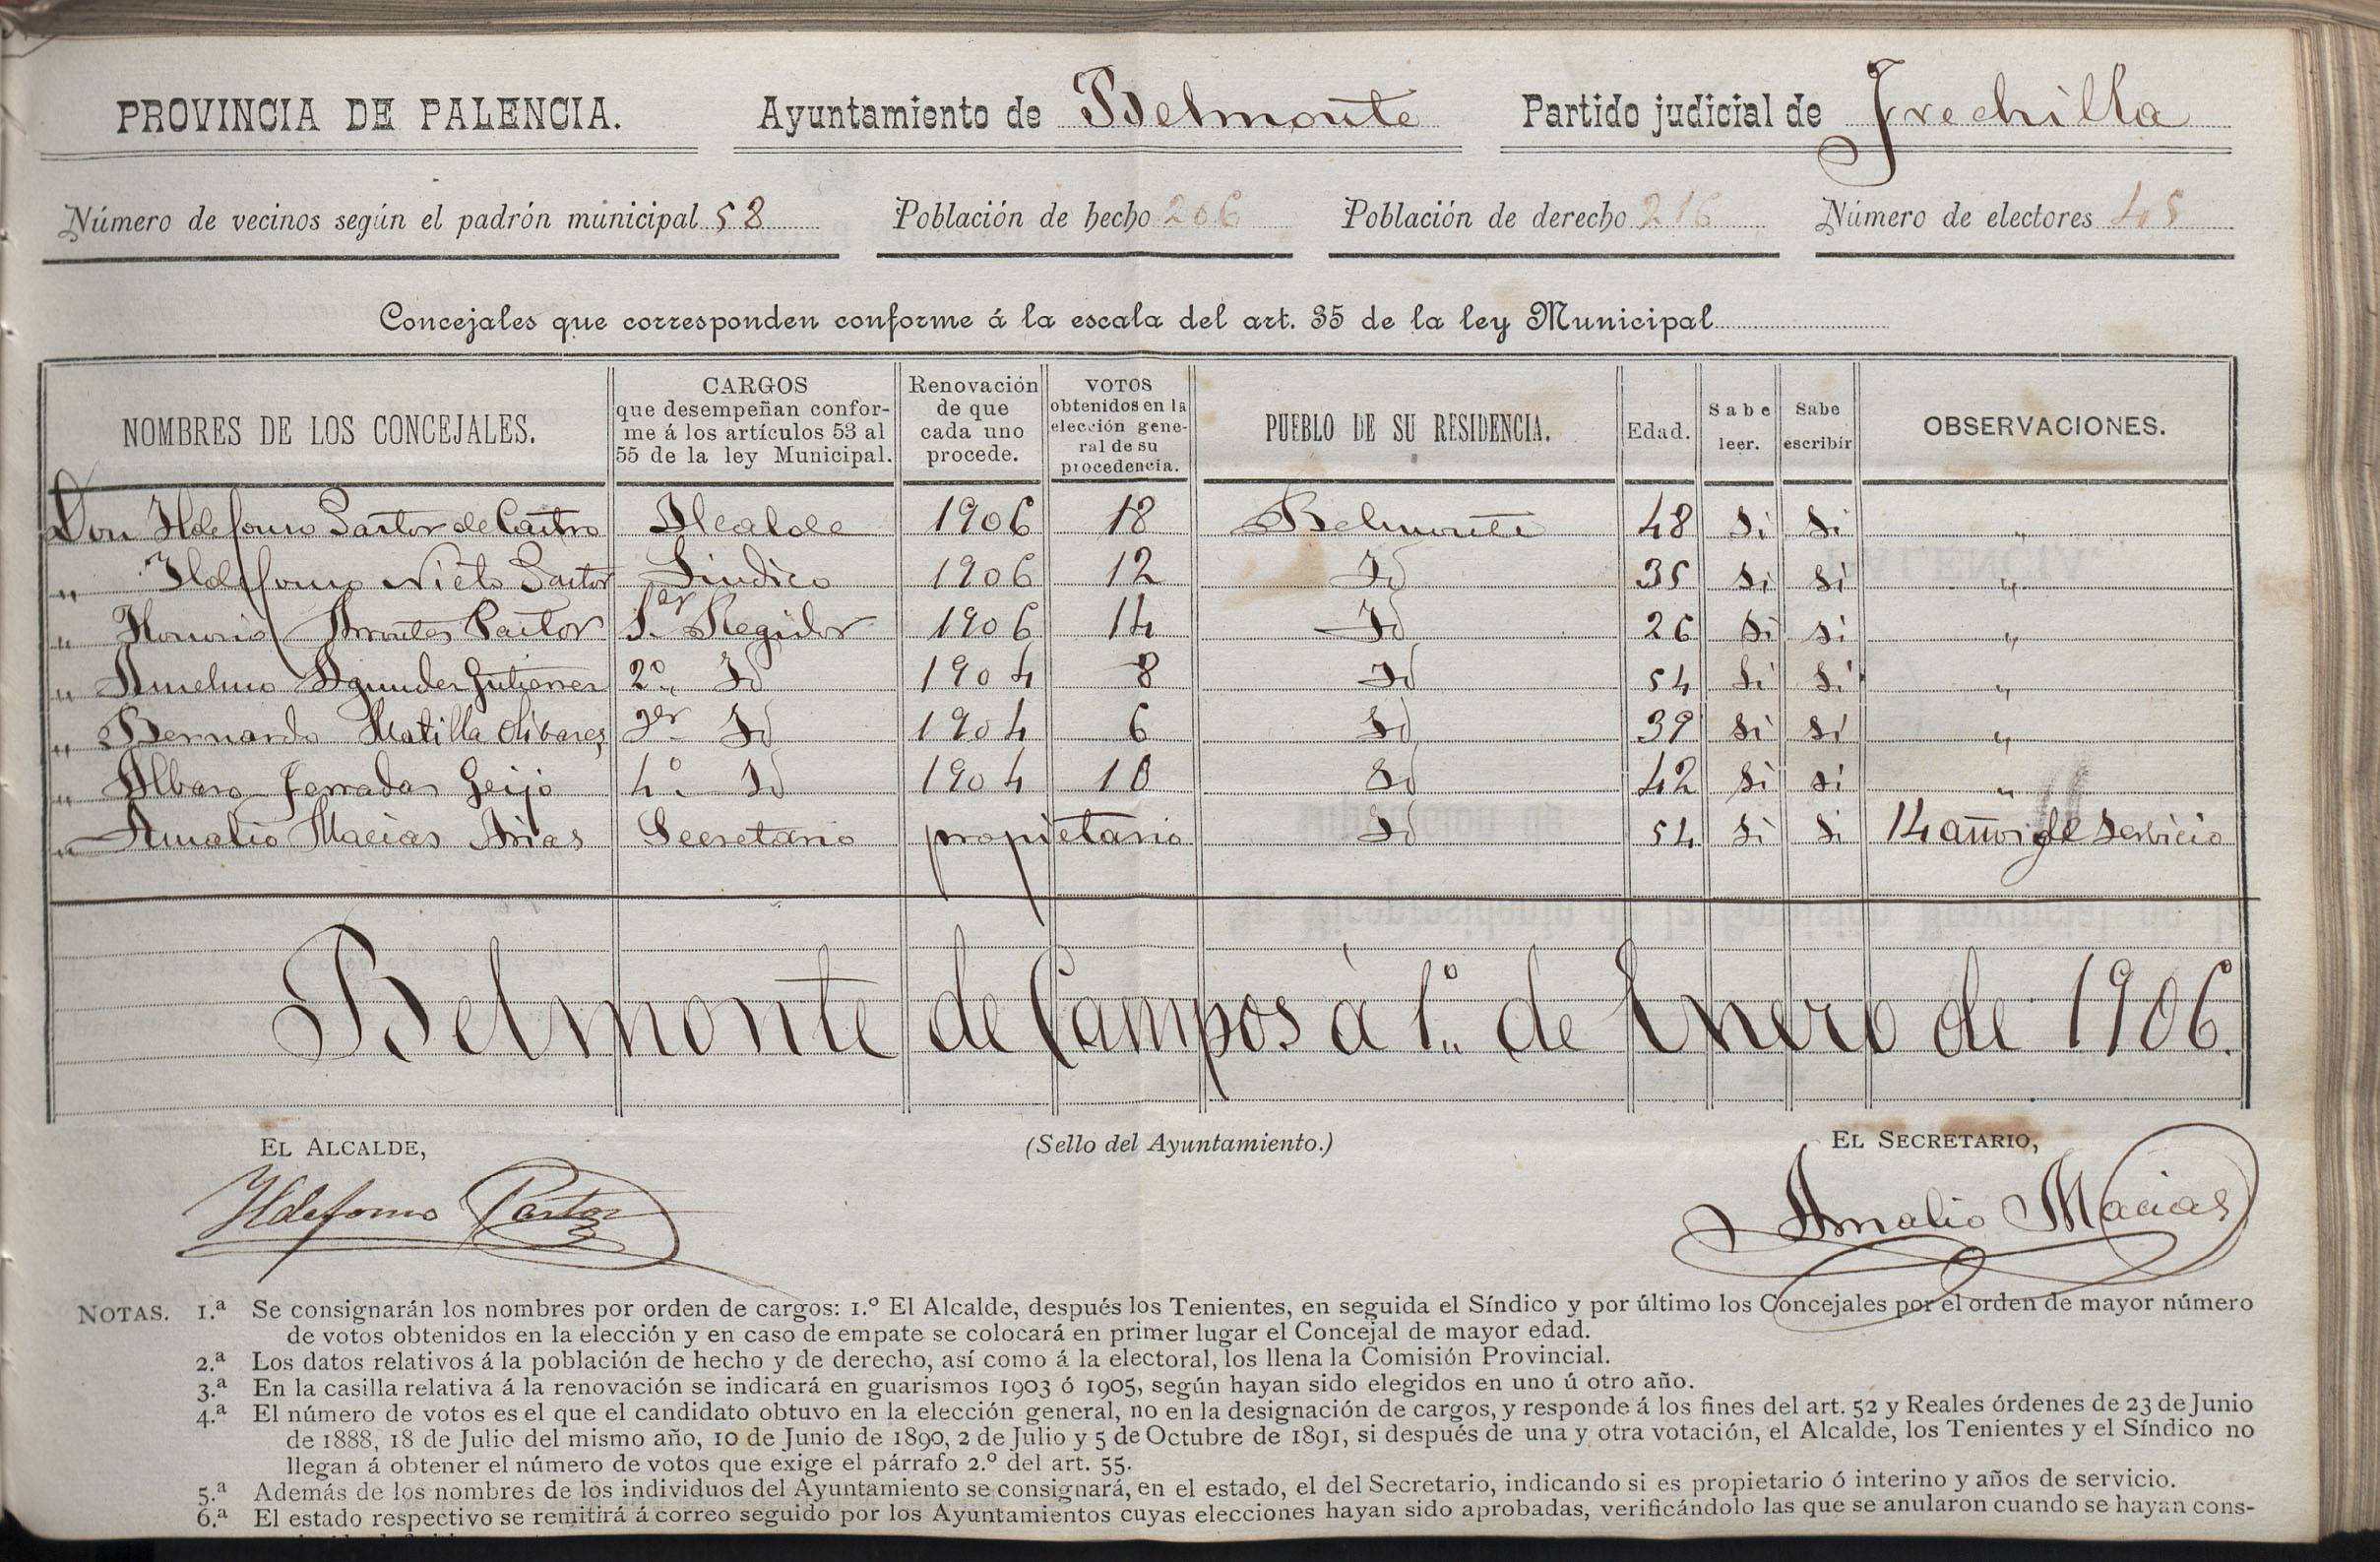 PROVINCIA DE PALENCIA. Ayuntamiento de Belmonte Partido judicial de Frechilla
Número de vecinos según el padrón municipal 58 Población de hecho 206 Población de derecho 216 Número de electores 45
Concejales que corresponden conforme á la escala del art. 35 de la ley Municipal
NOMBRES DE LOS CONCEJALES. CARGOS que desempeñan conforme á los artículos 53 al 55 de la ley Municipal. Renovación de que cada uno procede. VOTOS obtenidos en la elección general de su procedencia. PUEBLO DE SU RESIDENCIA. Edad. Sabe leer. Sabe escribir OBSERVACIONES.
Don Ildefonso Pastor de Castro Alcalde 1906 18 Belmonte 48 Si Si "
" Ildefonso Nieto Pastor Sindico 1906 12 Id 35 Si Si "
" Honorio Pastor 1.er Regidor 1906 14 Id 26 Si Si "
" Anselmo Gutierrez 2º Id 1904 8 Id 54 Si Si "
" Bernardo Matilla Olibares 3er Id 1904 6 Id 39 Si Si "
" Albaro Geijo 4º Id 1904 10 Id 42 Si Si "
" Amalio Macias Arias Secretario propietario Id 54 Si Si 14 años de servicio
Belmonte de Campos á 1º de Enero de 1906.
EL ALCALDE, (Sello del Ayuntamiento.) EL SECRETARIO,
Ildefonso Pastor Amalio Macias
NOTAS. 1.ª Se consignarán los nombres por orden de cargos: 1.º El Alcalde, después los Tenientes, en seguida el Síndico y por último los Concejales por el orden de mayor número
de votos obtenidos en la elección y en caso de empate se colocará en primer lugar el Concejal de mayor edad.
2.ª Los datos relativos á la población de hecho y de derecho, así como á la electoral, los llena la Comisión Provincial.
3.ª En la casilla relativa á la renovación se indicará en guarismos 1903 ó 1905, según hayan sido elegidos en uno ú otro año.
4.ª El número de votos es el que el candidato obtuvo en la elección general, no en la designación de cargos, y responde á los fines del art. 52 y Reales órdenes de 23 de Junio
de 1888, 18 de Julio del mismo año, 10 de Junio de 1890, 2 de Julio y 5 de Octubre de 1891, si después de una y otra votación, el Alcalde, los Tenientes y el Síndico no
llegan á obtener el número de votos que exige el párrafo 2.º del art. 55.
5.ª Además de los nombres de los individuos del Ayuntamiento se consignará, en el estado, el del Secretario, indicando si es propietario ó interino y años de servicio.
6.ª El estado respectivo se remitirá á correo seguido por los Ayuntamientos cuyas elecciones hayan sido aprobadas, verificándolo las que se anularon cuando se hayan cons-